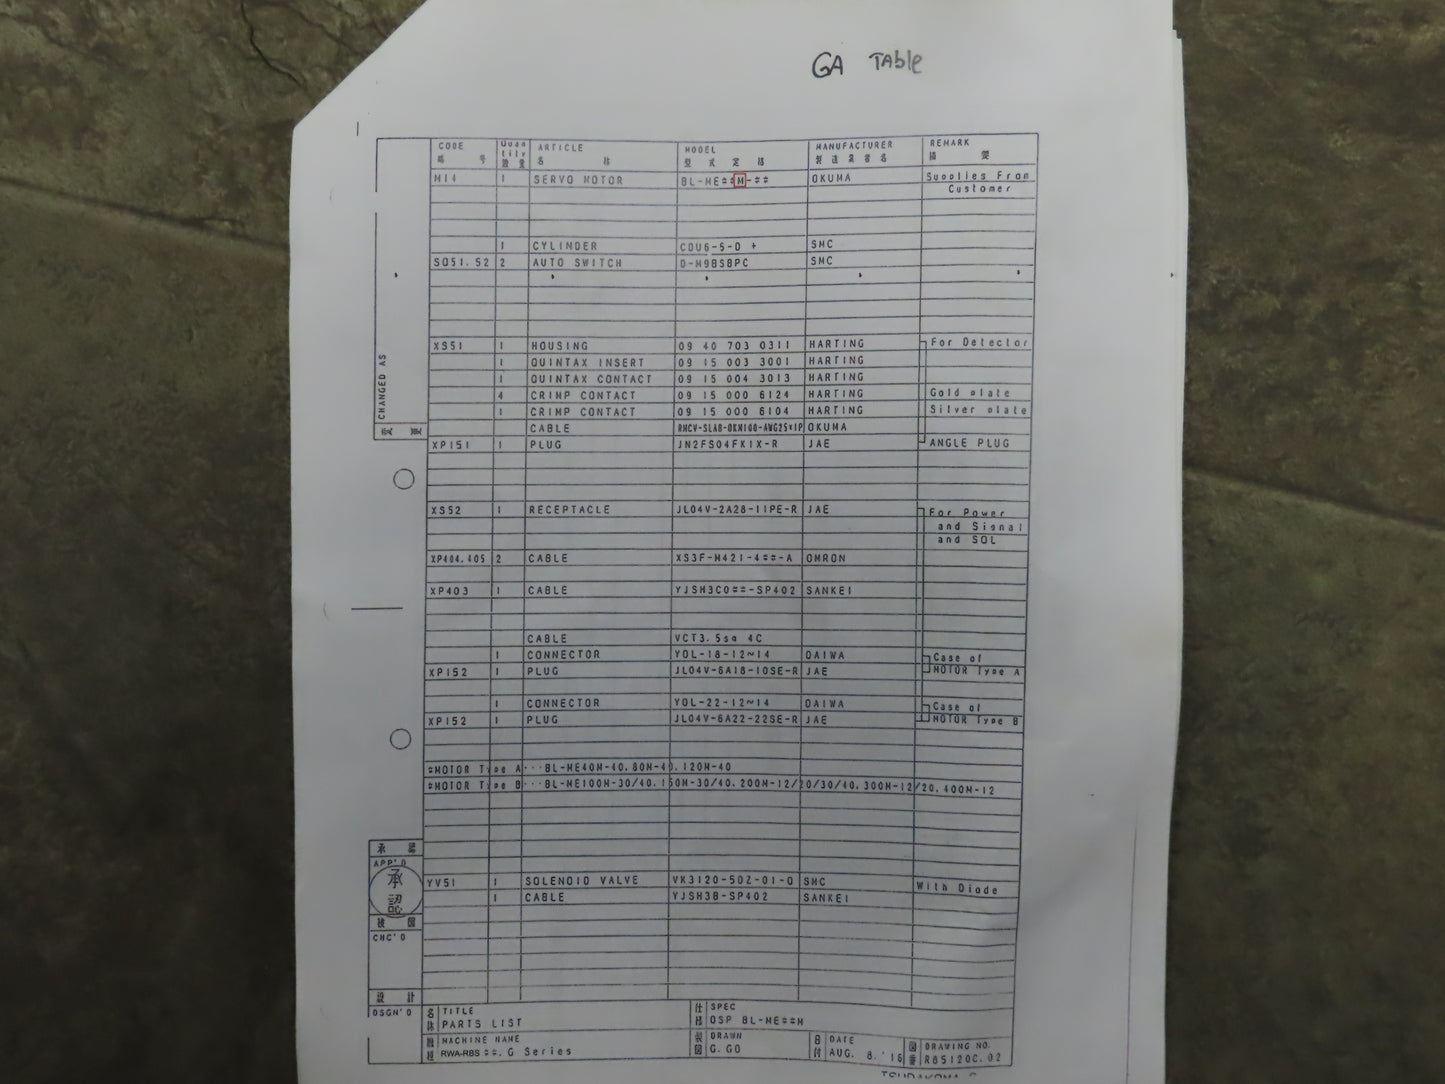 GA Table
CODE Quantity ARTICLE MODEL MANUFACTURER REMARK
番 号 数量 名 称 型 式 定 格 製造業者名 摘 要
M14 1 SERVO MOTOR BL-ME**M-** OKUMA Supplies From
Customer
1 CYLINDER CDU6-5-D + SMC
SQ51.52 2 AUTO SWITCH D-M9BSBPC SMC
XS51 1 HOUSING 09 40 703 0311 HARTING For Detector
1 QUINTAX INSERT 09 15 003 3001 HARTING
1 QUINTAX CONTACT 09 15 004 3013 HARTING
4 CRIMP CONTACT 09 15 000 6124 HARTING Gold plate
1 CRIMP CONTACT 09 15 000 6104 HARTING Silver plate
CABLE RMCV-SLAB-OKM100-AWG25*1P OKUMA
XP151 1 PLUG JN2FS04FK1X-R JAE ANGLE PLUG
XS52 1 RECEPTACLE JL04V-2A28-11PE-R JAE For Power
and Signal
and SOL
XP404.405 2 CABLE XS3F-M421-4**-A OMRON
XP403 1 CABLE YJSH3C0**-SP402 SANKEI
CABLE VCT3.5sq 4C
1 CONNECTOR YOL-18-12~14 DAIWA Case of
XP152 1 PLUG JL04V-6A18-10SE-R JAE MOTOR Type A
1 CONNECTOR YOL-22-12~14 DAIWA Case of
XP152 1 PLUG JL04V-6A22-22SE-R JAE MOTOR Type B
*MOTOR Type A···BL-ME40M-40.80M-40.120M-40
*MOTOR Type B···BL-ME100M-30/40.150M-30/40.200M-12/20/30/40.300M-12/20.400M-12
YV51 1 SOLENOID VALVE VK3120-50Z-01-Q SMC With Diode
1 CABLE YJSH3B-SP402 SANKEI
CHANGED AS
変 更
承 認
APP'D
承
認
検 図
CHC'D
設 計
DSGN'D
名称 TITLE
PARTS LIST
仕様 SPEC
OSP BL-ME**M
機種 MACHINE NAME
RWA-RBS **.G Series
製図 DRAWN
G.GO
日付 DATE
AUG. 8.'16
図番 DRAWING NO.
RBS120C.02